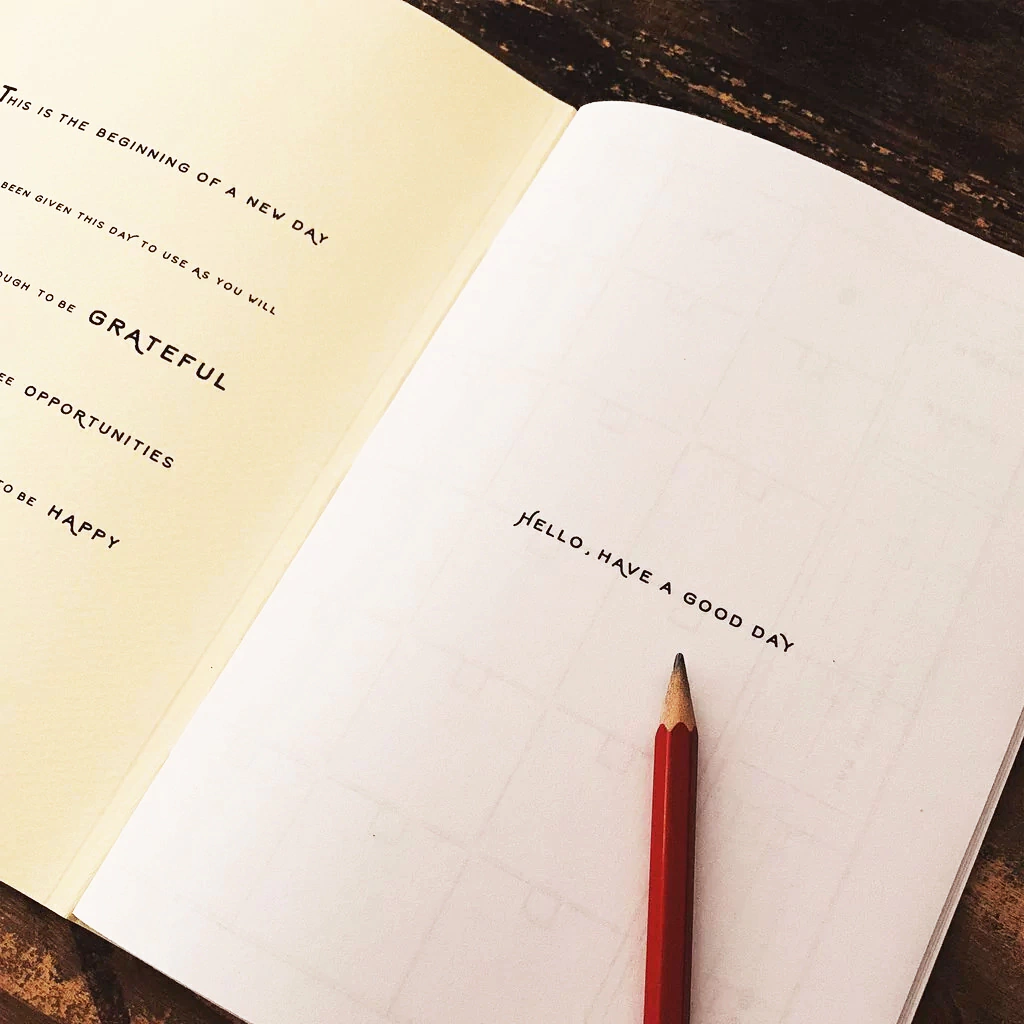 This is the beginning of a new day
been given this day to use as you will
to be GRATEFUL
opportunities
to be happy
Hello, have a good day